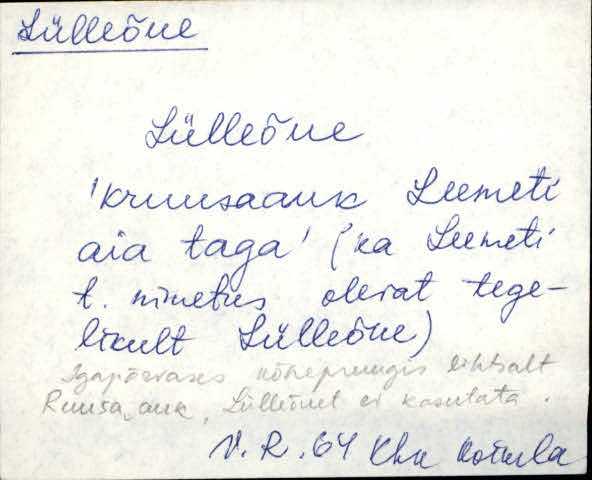 Lülleõue
Lülleõue
'kruusaauk Leemeti
aia taga' (ka Leemeti
t. nimetus olevat tege-
likult Lülleõue)
Igapäevases kõnepruugis lihtsalt
Ruusa,auk, Lülleõuet ei kasutata.
V. R. 64 Khk